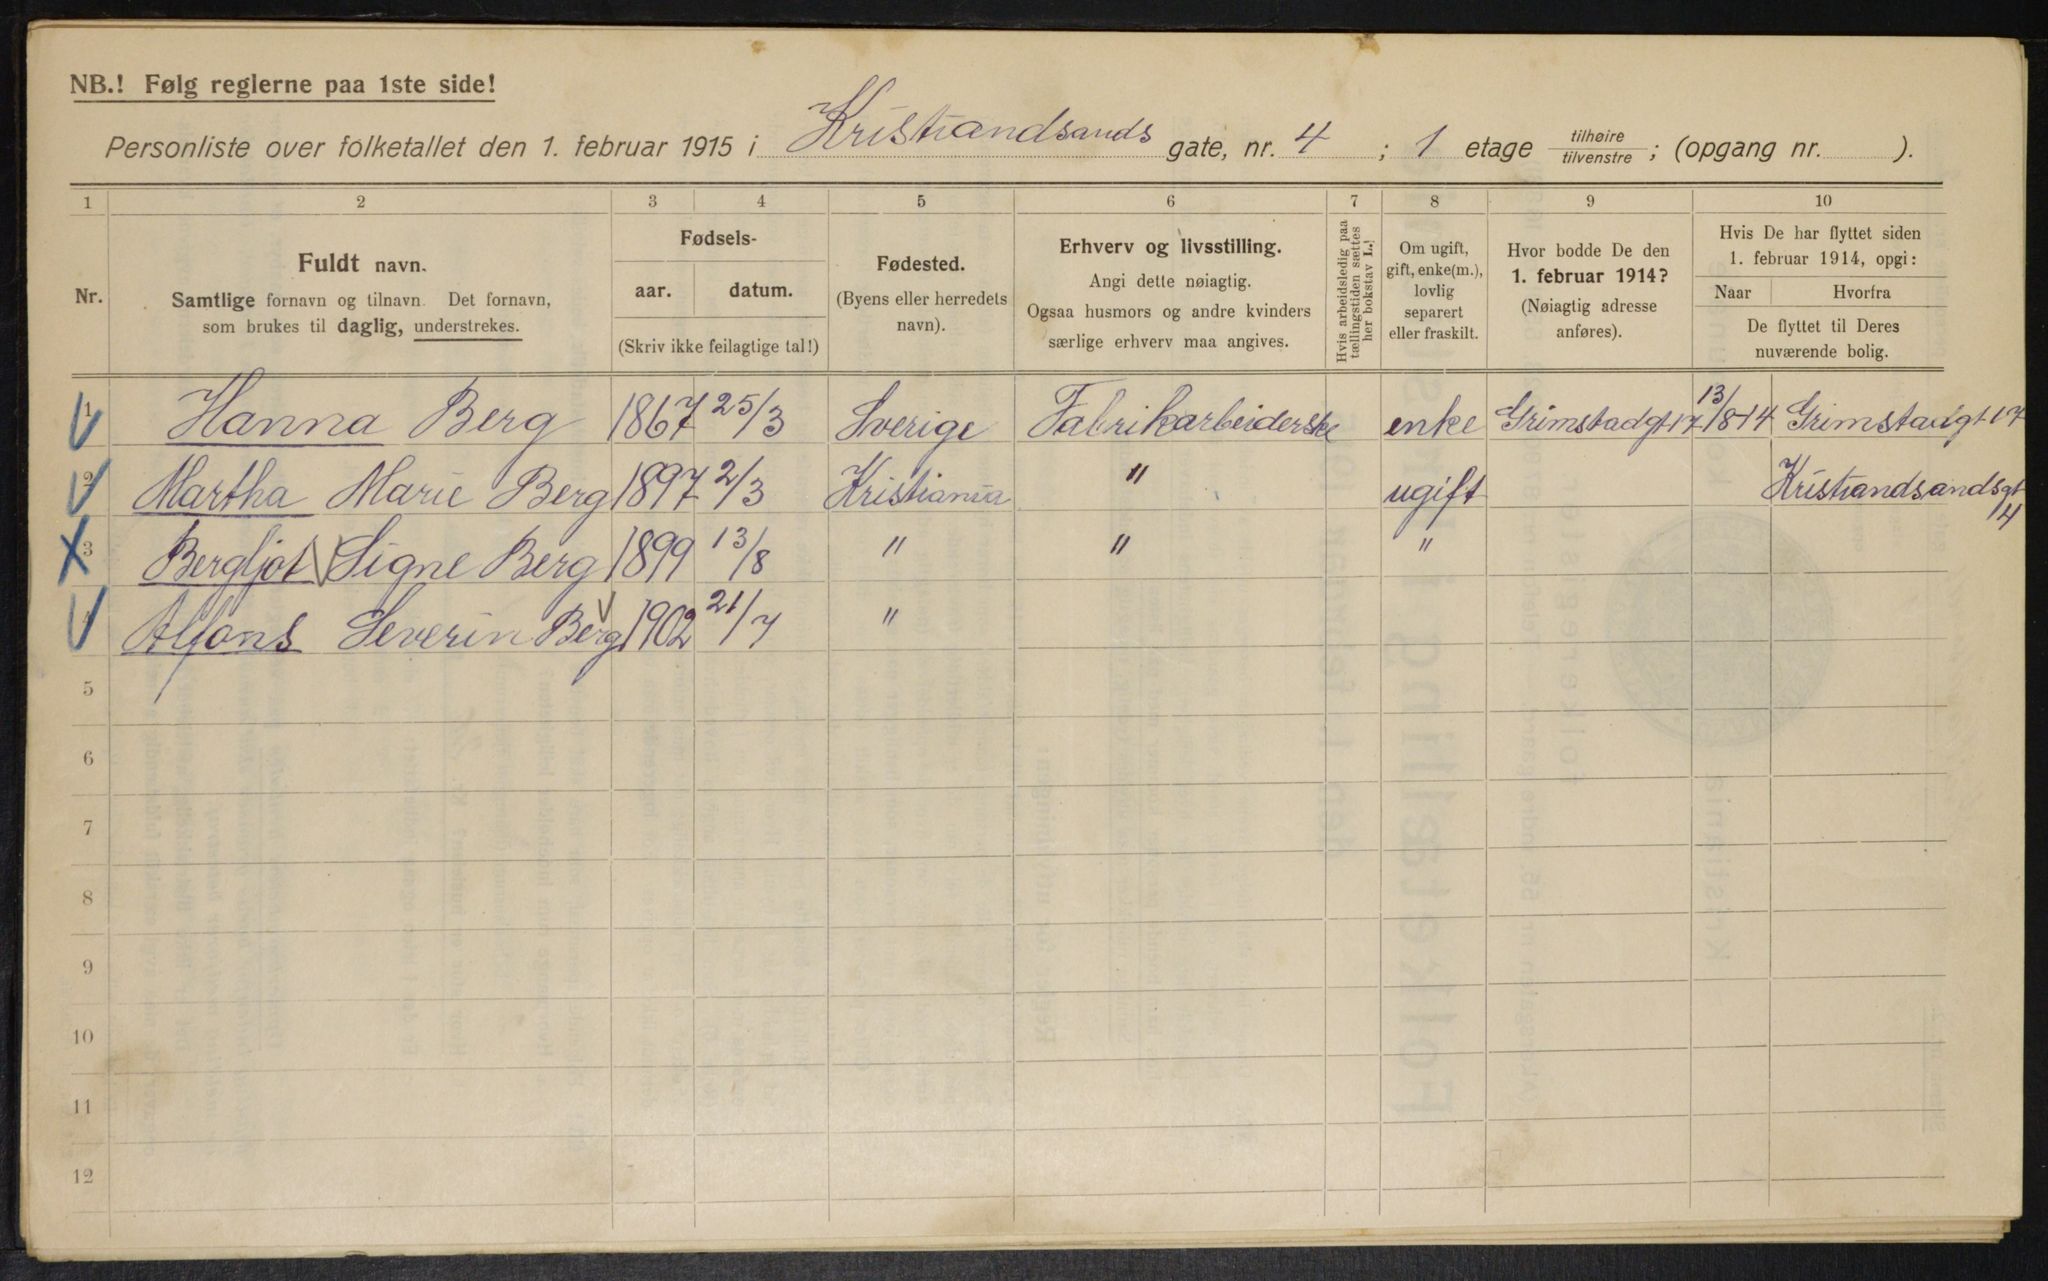 NB.! Følg reglerne paa 1ste side!
Personliste over folketallet den 1. februar 1915 i Kristiandsands gate, nr. 4 ; 1 etage tilhøire / tilvenstre ; (opgang nr. ).
1 2 3 4 5 6 7 8 9 10
Nr.
Fuldt navn.
Samtlige fornavn og tilnavn. Det fornavn,
som brukes til daglig, understrekes.
Fødsels-
aar. datum.
(Skriv ikke feilagtige tal!)
Fødested.
(Byens eller herredets
navn).
Erhverv og livsstilling.
Angi dette nøiagtig.
Ogsaa husmors og andre kvinders
særlige erhverv maa angives.
Hvis arbeidsledig paa
tællingstiden sættes
her bokstav L.!
Om ugift,
gift, enke(m.),
lovlig
separert
eller fraskilt.
Hvor bodde De den
1. februar 1914?
(Nøiagtig adresse
anføres).
Hvis De har flyttet siden
1. februar 1914, opgi:
Naar Hvorfra
De flyttet til Deres
nuværende bolig.
1 Hanna Berg 1867 25/3 Sverige Fabrikarbeiderske enke Grimstadgt 17 13/8-14 Grimstadgt 17
2 Martha Marie Berg 1897 2/3 Kristiania " ugift Kristiandsandsgt 14
3 Bergljot Signe Berg 1899 13/8 " " "
4 Alfons Severin Berg 1902 21/7 "
5
6
7
8
9
10
11
12